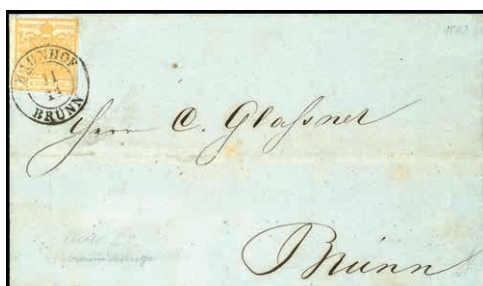 BAHNHOF
11
BRÜNN
Herrn C. Glaßner
Brünn